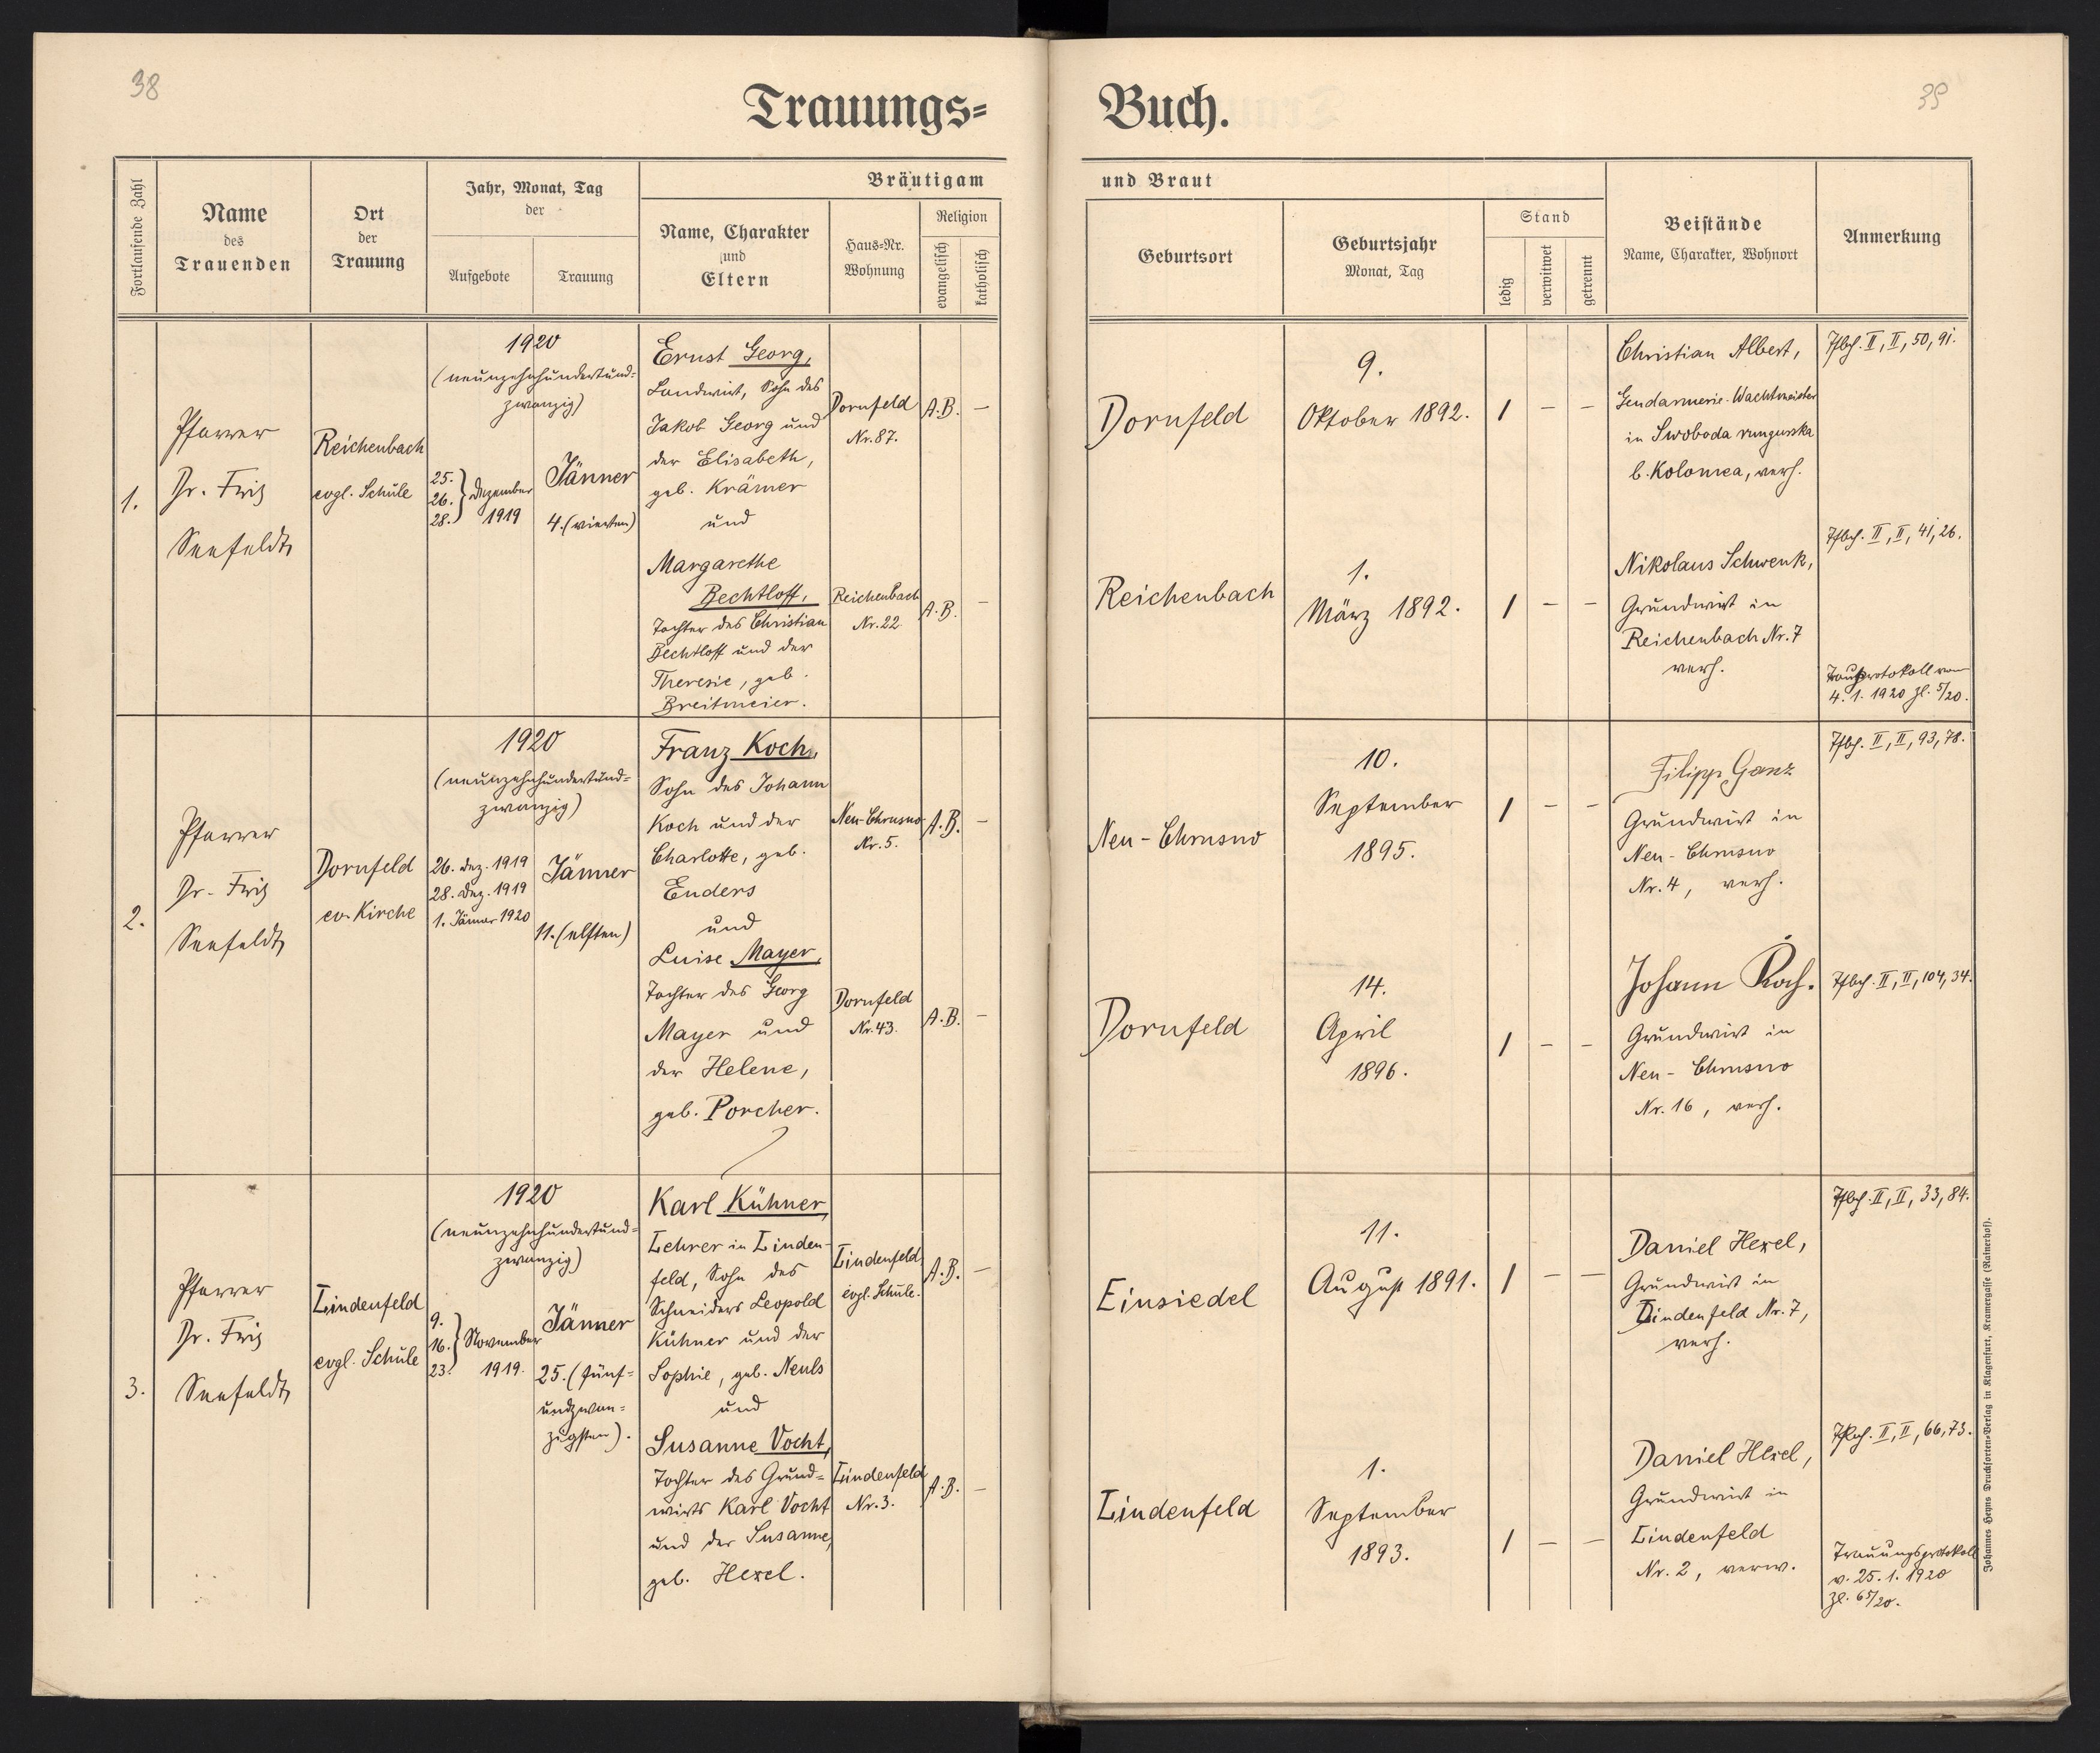 38
Trauungs=
Buch.
39
Fortlaufende Zahl
Name
des
Trauenden
Ort
der
Trauung
Jahr, Monat, Tag
der
Aufgebote
Trauung
Bräutigam
Name, Charakter
und
Eltern
Haus=Nr.
Wohnung
Religion
evangelisch
katholisch
und Braut
Geburtsort
Geburtsjahr
Monat, Tag
Stand
ledig
verwitwet
getrennt
Beistände
Name, Charakter, Wohnort
Anmerkung
1.
Pfarrer
Dr. Fritz
Seefeldt
Reichenbach
evgl. Schule
1920
(neunzehnhundertund=
zwanzig)
25.
26.
28.
} Dezember
1919
Jänner
4. (vierten)
Ernst Georg,
Landwirt, Sohn des
Jakob Georg und
der Elisabeth,
geb. Krämer
und
Margarethe
Bechtloff,
Tochter des Christian
Bechtloff und der
Theresie, geb.
Breitmeier.
Dornfeld
Nr. 87.
A.B. –
Reichenbach
Nr. 22
A.B. –
Dornfeld
9.
Oktober 1892.
1 – –
Reichenbach
1.
März 1892.
1 – –
Christian Albert,
Gendarmerie-Wachtmeister
in Swoboda rungurska
b. Kolomea, verh.
Nikolaus Schwenk,
Grundwirt in
Reichenbach Nr. 7
verh.
Pfbch. II, II, 50, 91.
Pfbch. II, II, 41, 26.
4. 1. 1920 Zl. 5/20.
2.
Pfarrer
Dr. Fritz
Seefeldt
Dornfeld
ev. Kirche
1920
(neunzehnhundertund=
zwanzig)
26. Dez. 1919
28. Dez. 1919
1. Jänner 1920
Jänner
11. (elften)
Franz Koch,
Sohn des Johann
Koch und der
Charlotte, geb.
Enders
und
Luise Mayer,
Tochter des Georg
Mayer und
der Helene,
geb. Porcher.
Neu-Chrusno
Nr. 5.
A.B. –
Dornfeld
Nr. 43.
A.B. –
Neu-Chrusno
10.
September
1895.
1 – –
Dornfeld
14.
April
1896.
1 – –
Filipp Ganz
Grundwirt in
Neu-Chrusno
Nr. 4, verh.
Johann Koch.
Grundwirt in
Neu-Chrusno
Nr. 16, verh.
Pfbch. II, II, 93, 78.
Pfbch. II, II, 104, 34.
3.
Pfarrer
Dr. Fritz
Seefeldt
Lindenfeld
evgl. Schule
1920
(neunzehnhundertund=
zwanzig)
9.
16.
23.
} November
1919.
Jänner
25. (fünf=
undzwan=
zigsten).
Karl Kühner,
Lehrer in Linden-
feld, Sohn des
Schneiders Leopold
Kühner und der
Sophie, geb. Neuls
und
Susanne Vocht,
Tochter des Grund=
wirts Karl Vocht
und der Susanne,
geb. Hexel.
Lindenfeld
evgl. Schule.
A.B. –
Lindenfeld
Nr. 3.
A.B. –
Einsiedel
11.
August 1891.
1 – –
Lindenfeld
1.
September
1893.
1 – –
Daniel Hexel,
Grundwirt in
Lindenfeld Nr. 7,
verh.
Daniel Hexel,
Grundwirt in
Lindenfeld
Nr. 2, verw.
Pfbch. II, II, 33, 84.
Pfbch. II, II, 66, 73.
Trauungsprotokoll
v. 25. 1. 1920
Zl. 65/20.
Johannes Heyns Drucksorten=Verlag in Klagenfurt, Kramergasse (Rainerhof).